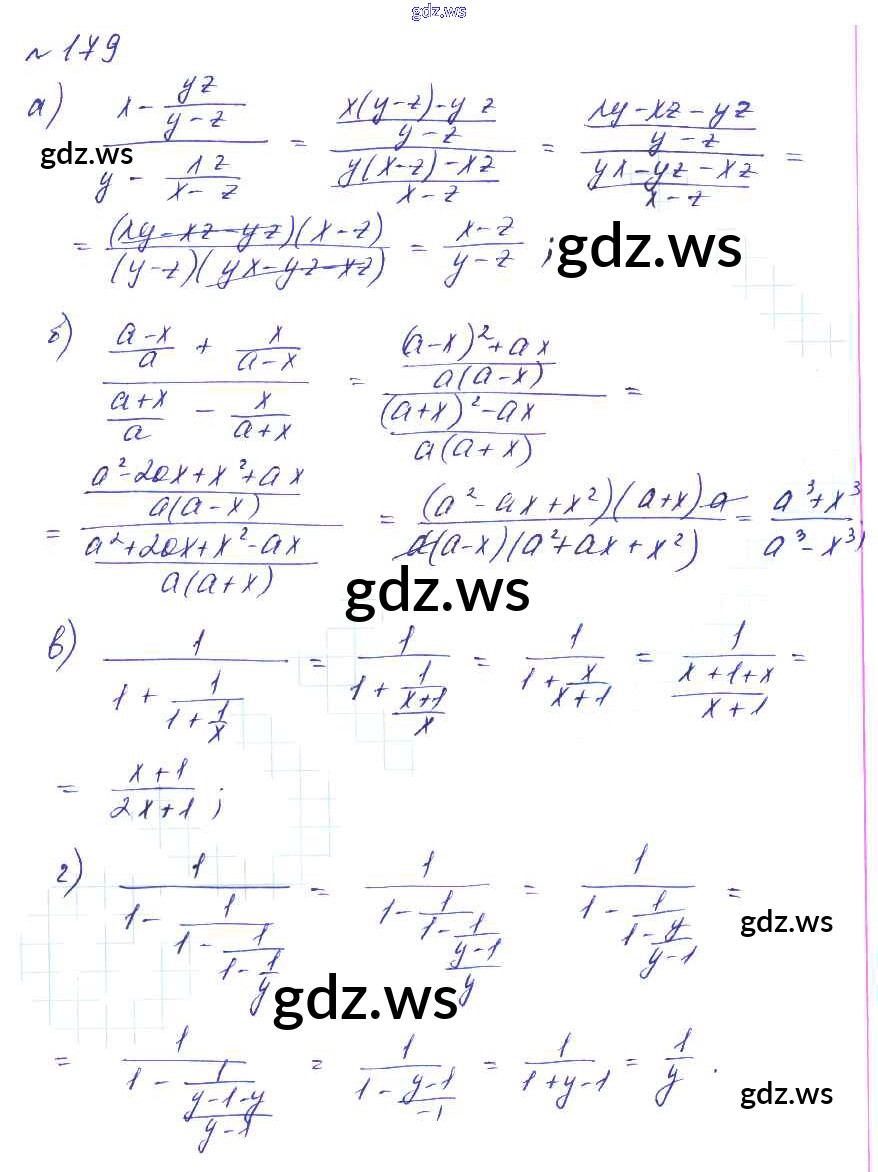 gdz.ws
№ 179
а) (x - yz/(y-z)) / (y - xz/(x-z)) = ((x(y-z)-yz)/(y-z)) / ((y(x-z)-xz)/(x-z)) = ((xy-xz-yz)/(y-z)) / ((yx-yz-xz)/(x-z)) =
gdz.ws
= ((xy-xz-yz)(x-z)) / ((y-z)(yx-yz-xz)) = (x-z)/(y-z) ;
gdz.ws
б) ((a-x)/a + x/(a-x)) / ((a+x)/a - x/(a+x)) = (((a-x)²+ax)/(a(a-x))) / (((a+x)²-ax)/(a(a+x))) =
= ((a²-2ax+x²+ax)/(a(a-x))) / ((a²+2ax+x²-ax)/(a(a+x))) = ((a²-ax+x²)(a+x)a) / (a(a-x)(a²+ax+x²)) = (a³+x³)/(a³-x³) ;
gdz.ws
в) 1/(1 + 1/(1 + 1/x)) = 1/(1 + 1/((x+1)/x)) = 1/(1 + x/(x+1)) = 1/((x+1+x)/(x+1)) =
= (x+1)/(2x+1) ;
г) 1/(1 - 1/(1 - 1/(1 - 1/y))) = 1/(1 - 1/(1 - 1/((y-1)/y))) = 1/(1 - 1/(1 - y/(y-1))) =
gdz.ws
gdz.ws
= 1/(1 - 1/((y-1-y)/(y-1))) = 1/(1 - (y-1)/(-1)) = 1/(1+y-1) = 1/y .
gdz.ws